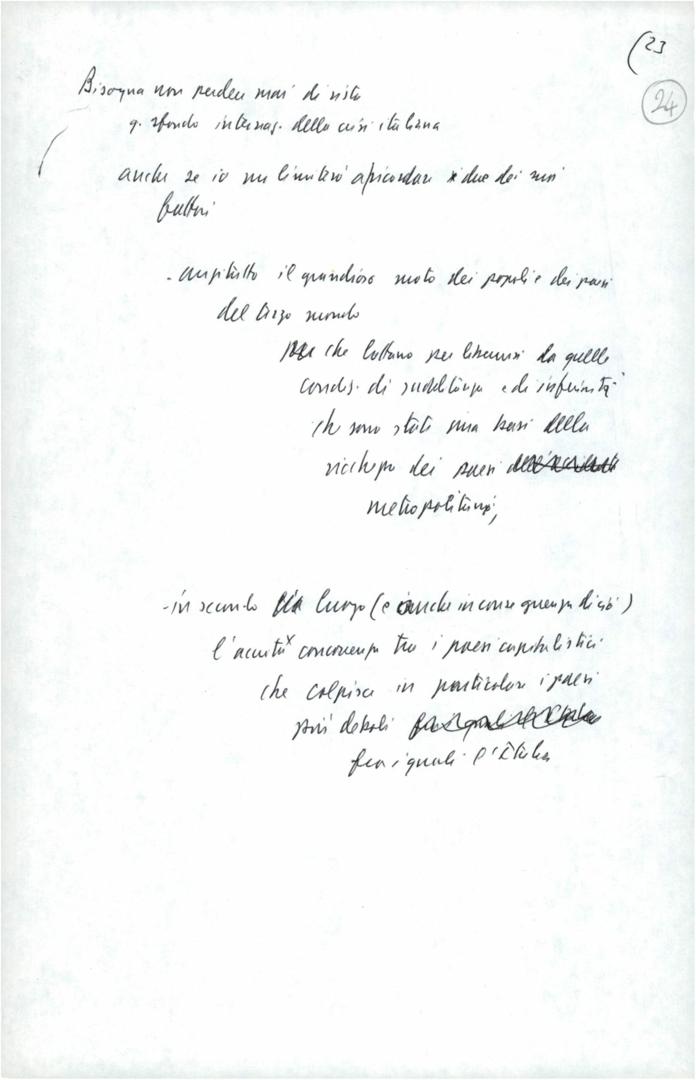 (23
24
Bisogna non perdere mai di vista
q. sfondo internaz. della crisi italiana
anche se io mi limiterò a ricordare due dei suoi
fattori
- anzitutto il grandioso moto dei popoli e dei paesi
del terzo mondo
che lottano per liberarsi da quelle
condiz. di sudditanza e di inferiorità
che sono state una base della
ricchezza dei paesi
metropolitani,
- in secondo luogo (e anche in conseguenza di ciò)
l'acuita concorrenza tra i paesi capitalistici
che colpisce in particolare i paesi
più deboli
fra i quali l'Italia